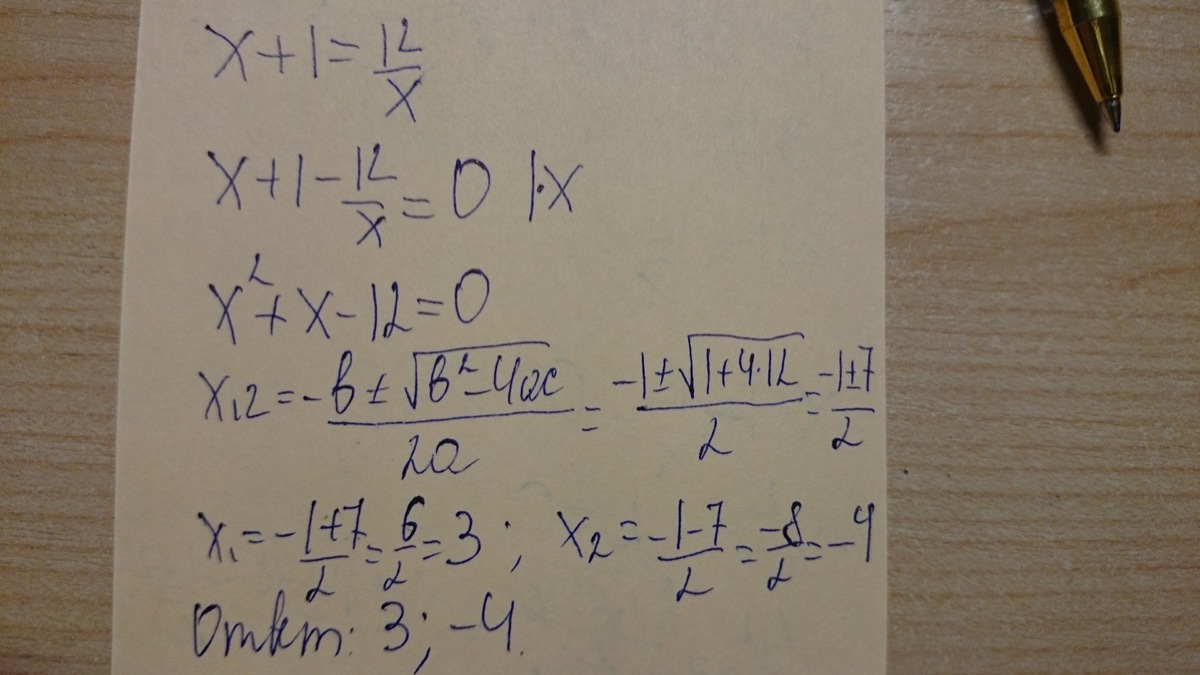 x+1=12/x
x+1-12/x=0 |·x
x²+x-12=0
x₁,₂=-в±√(в²-4ac)/2a=-1±√(1+4·12)/2=-1±7/2
x₁=-1+7/2=6/2=3; x₂=-1-7/2=-8/2=-4
Ответ: 3; -4.